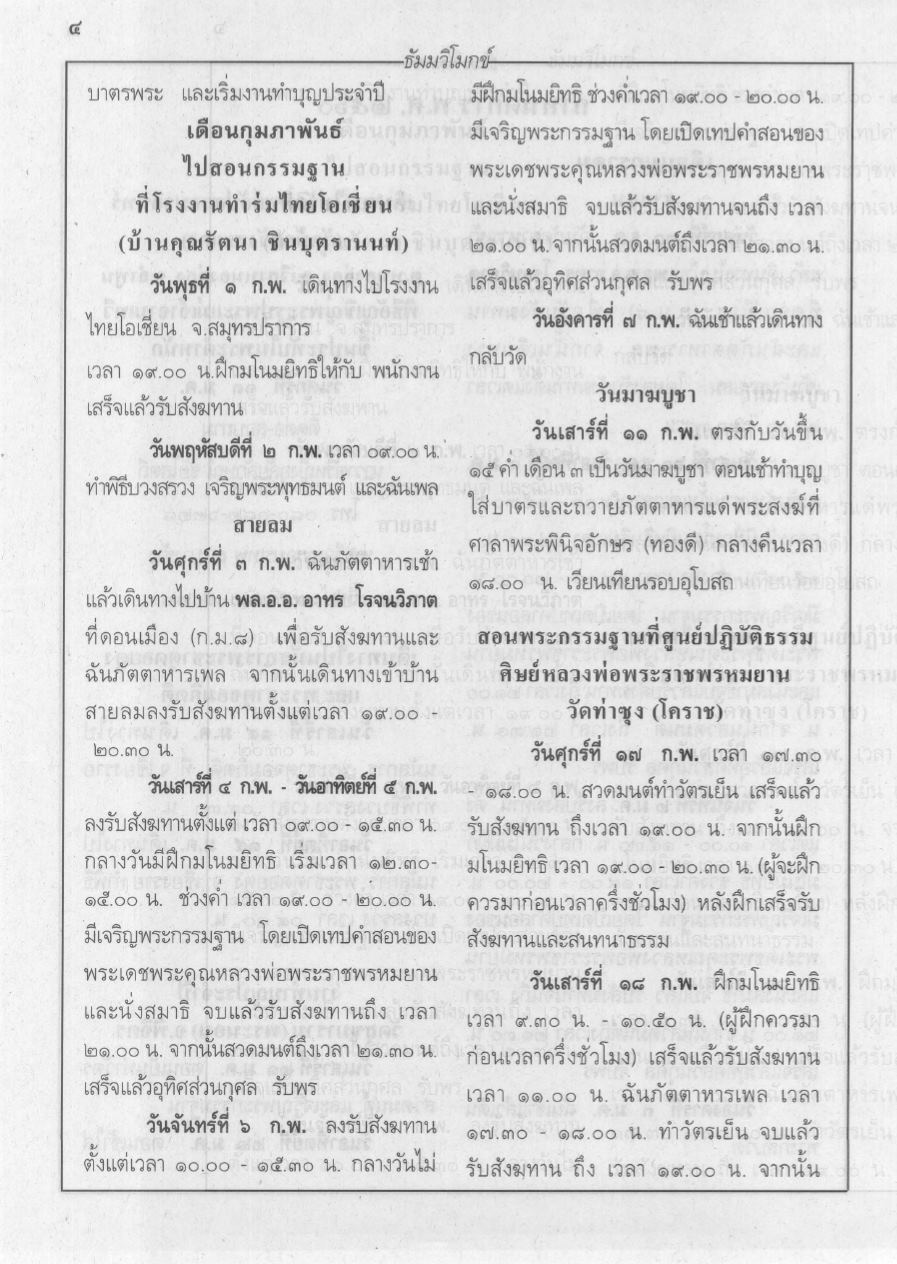 ๔
ธัมมวิโมกข์
บาตรพระ และเริ่มงานทำบุญประจำปี
เดือนกุมภาพันธ์
ไปสอนกรรมฐาน
ที่โรงงานทำร่มไทยโอเชี่ยน
(บ้านคุณรัตนา ชินบุตรานนท์)
วันพุธที่ ๑ ก.พ. เดินทางไปโรงงาน
ไทยโอเชี่ยน จ.สมุทรปราการ
เวลา ๑๙.๐๐ น.ฝึกมโนมยิทธิให้กับ พนักงาน
เสร็จแล้วรับสังฆทาน
วันพฤหัสบดีที่ ๒ ก.พ. เวลา ๐๙.๐๐ น.
ทำพิธีบวงสรวง เจริญพระพุทธมนต์ และฉันเพล
สายลม
วันศุกร์ที่ ๓ ก.พ. ฉันภัตตาหารเช้า
แล้วเดินทางไปบ้าน พล.อ.อ. อาทร โรจนวิภาต
ที่ดอนเมือง (ก.ม.๘) เพื่อรับสังฆทานและ
ฉันภัตตาหารเพล จากนั้นเดินทางเข้าบ้าน
สายลมลงรับสังฆทานตั้งแต่เวลา ๑๙.๐๐ -
๒๐.๓๐ น.
วันเสาร์ที่ ๔ ก.พ. - วันอาทิตย์ที่ ๕ ก.พ.
ลงรับสังฆทานตั้งแต่ เวลา ๐๙.๐๐ - ๑๕.๓๐ น.
กลางวันมีฝึกมโนมยิทธิ เริ่มเวลา ๑๒.๓๐-
๑๕.๐๐ น. ช่วงค่ำ เวลา ๑๙.๐๐ - ๒๐.๐๐ น.
มีเจริญพระกรรมฐาน โดยเปิดเทปคำสอนของ
พระเดชพระคุณหลวงพ่อพระราชพรหมยาน
และนั่งสมาธิ จบแล้วรับสังฆทานถึง เวลา
๒๑.๐๐ น. จากนั้นสวดมนต์ถึงเวลา ๒๑.๓๐ น.
เสร็จแล้วอุทิศส่วนกุศล รับพร
วันจันทร์ที่ ๖ ก.พ. ลงรับสังฆทาน
ตั้งแต่เวลา ๑๐.๐๐ - ๑๕.๓๐ น. กลางวันไม่
มีฝึกมโนมยิทธิ ช่วงค่ำเวลา ๑๙.๐๐ - ๒๐.๐๐ น.
มีเจริญพระกรรมฐาน โดยเปิดเทปคำสอนของ
พระเดชพระคุณหลวงพ่อพระราชพรหมยาน
และนั่งสมาธิ จบแล้วรับสังฆทานจนถึง เวลา
๒๑.๐๐ น. จากนั้นสวดมนต์ถึงเวลา ๒๑.๓๐ น.
เสร็จแล้วอุทิศส่วนกุศล รับพร
วันอังคารที่ ๗ ก.พ. ฉันเช้าแล้วเดินทาง
กลับวัด
วันมาฆบูชา
วันเสาร์ที่ ๑๑ ก.พ. ตรงกับวันขึ้น
๑๕ ค่ำ เดือน ๓ เป็นวันมาฆบูชา ตอนเช้าทำบุญ
ใส่บาตรและถวายภัตตาหารแด่พระสงฆ์ที่
ศาลาพระพินิจอักษร (ทองดี) กลางคืนเวลา
๑๘.๐๐ น. เวียนเทียนรอบอุโบสถ
สอนพระกรรมฐานที่ศูนย์ปฏิบัติธรรม
ศิษย์หลวงพ่อพระราชพรหมยาน
วัดท่าซุง (โคราช)
วันศุกร์ที่ ๑๗ ก.พ. เวลา ๑๗.๓๐
- ๑๘.๐๐ น. สวดมนต์ทำวัตรเย็น เสร็จแล้ว
รับสังฆทาน ถึงเวลา ๑๙.๐๐ น. จากนั้นฝึก
มโนมยิทธิ เวลา ๑๙.๐๐ - ๒๐.๓๐ น. (ผู้จะฝึก
ควรมาก่อนเวลาครึ่งชั่วโมง) หลังฝึกเสร็จรับ
สังฆทานและสนทนาธรรม
วันเสาร์ที่ ๑๘ ก.พ. ฝึกมโนมยิทธิ
เวลา ๙.๓๐ น. - ๑๐.๕๐ น. (ผู้ฝึกควรมา
ก่อนเวลาครึ่งชั่วโมง) เสร็จแล้วรับสังฆทาน
เวลา ๑๑.๐๐ น. ฉันภัตตาหารเพล เวลา
๑๗.๓๐ - ๑๘.๐๐ น. ทำวัตรเย็น จบแล้ว
รับสังฆทาน ถึง เวลา ๑๙.๐๐ น. จากนั้น